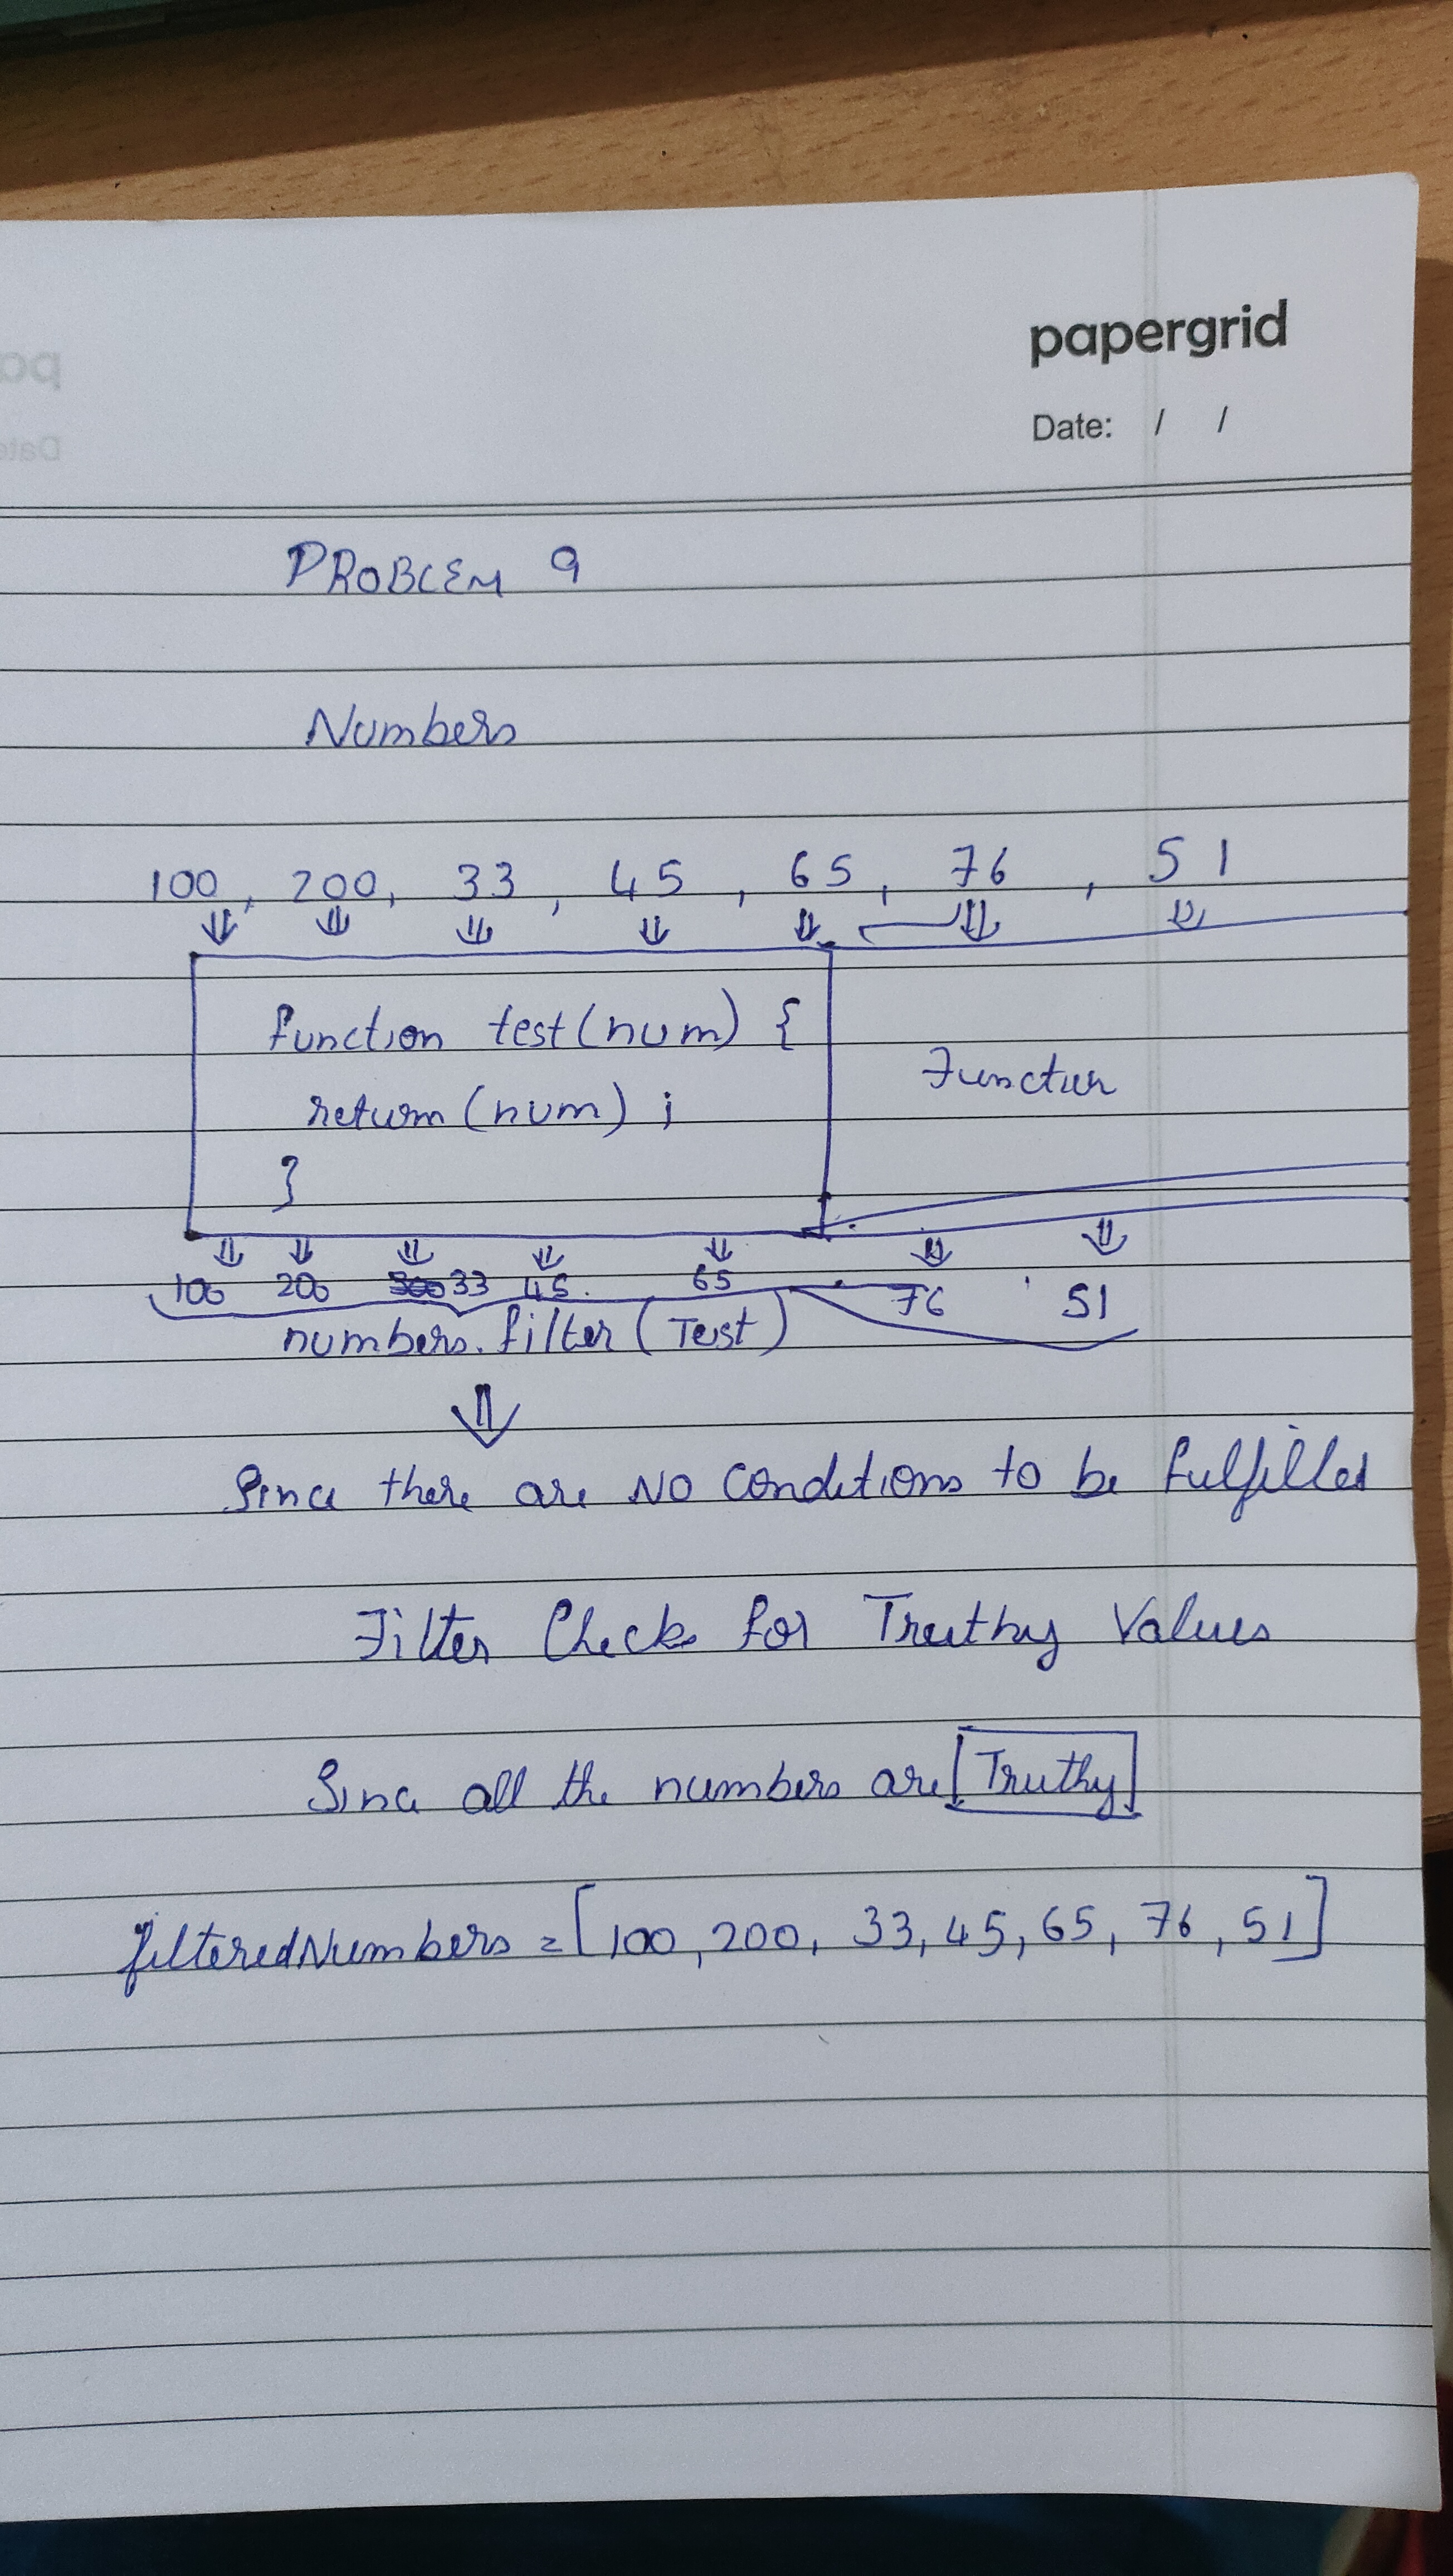 papergrid
Date: / /
PROBLEM 9
Numbers
100, 200, 33, 45, 65, 76, 51
function test(num) {
return (num) ;
}
Function
100 200 33 45. 65 76 51
numbers.filter(Test)
Since there are NO conditions to be fulfilled
Filter Checks for Truthy Values
Since all the numbers are Truthy
filteredNumbers = [100, 200, 33, 45, 65, 76, 51]